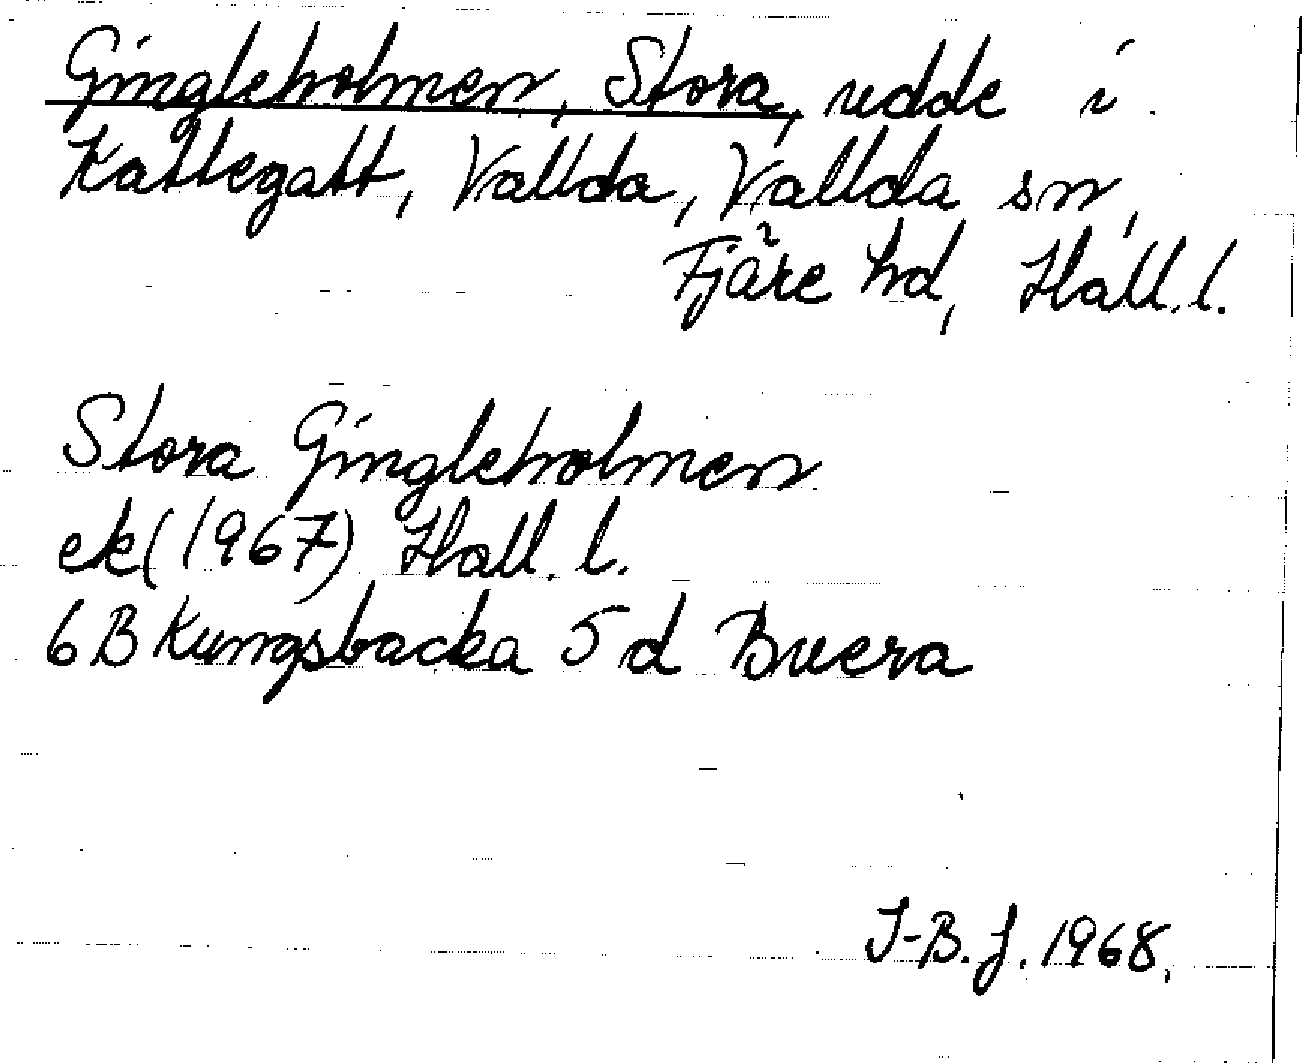 Gingleholmen, Stora, udde i
Kattegatt, Vallda, Vallda sn,
Fjäre hd, Hall. l.
Stora Gingleholmen
ek (1967) Hall. l.
6 B Kungsbacka 5 d Buera
I-B. J. 1968.